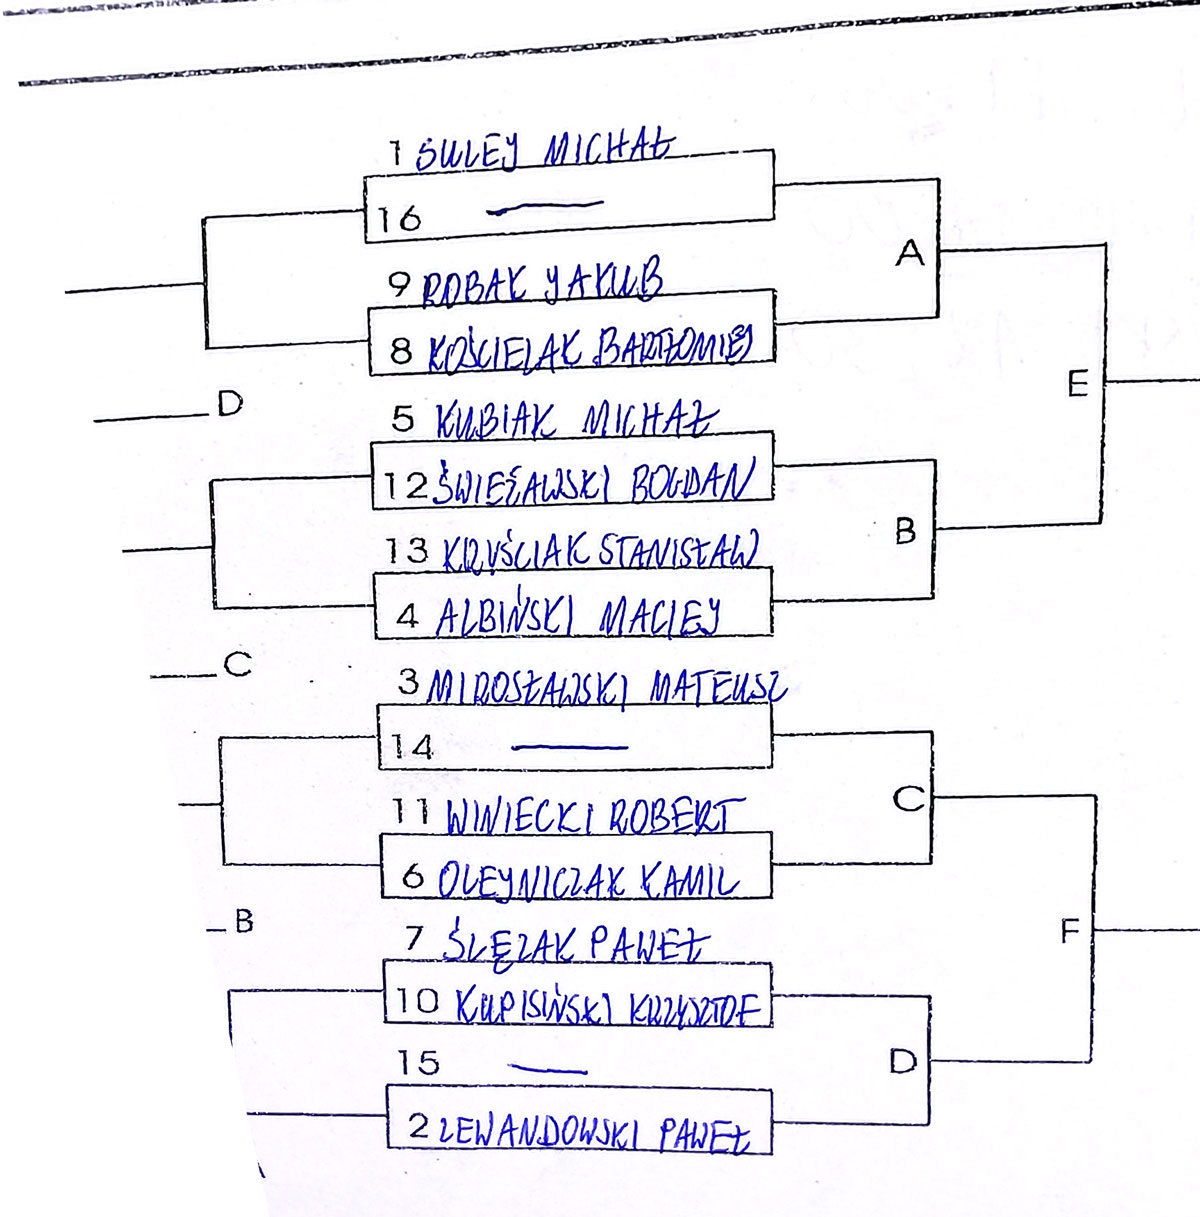 1 SULEJ MICHAŁ
16 —
A
9 ROBAK JAKUB
8 KOŚCIELAK BARTŁOMIEJ
E
D
5 KUBIAK MICHAŁ
12 ŚWIEŻAWSKI BOGDAN
B
13 KRYŚCIAK STANISŁAW
4 ALBIŃSKI MACIEJ
C
3 MIROSŁAWSKI MATEUSZ
14 —
C
11 WINIECKI ROBERT
6 OLEJNICZAK KAMIL
B
F
7 ŚLĘZAK PAWEŁ
10 KUPISIŃSKI KRZYSZTOF
15 —
D
2 LEWANDOWSKI PAWEŁ